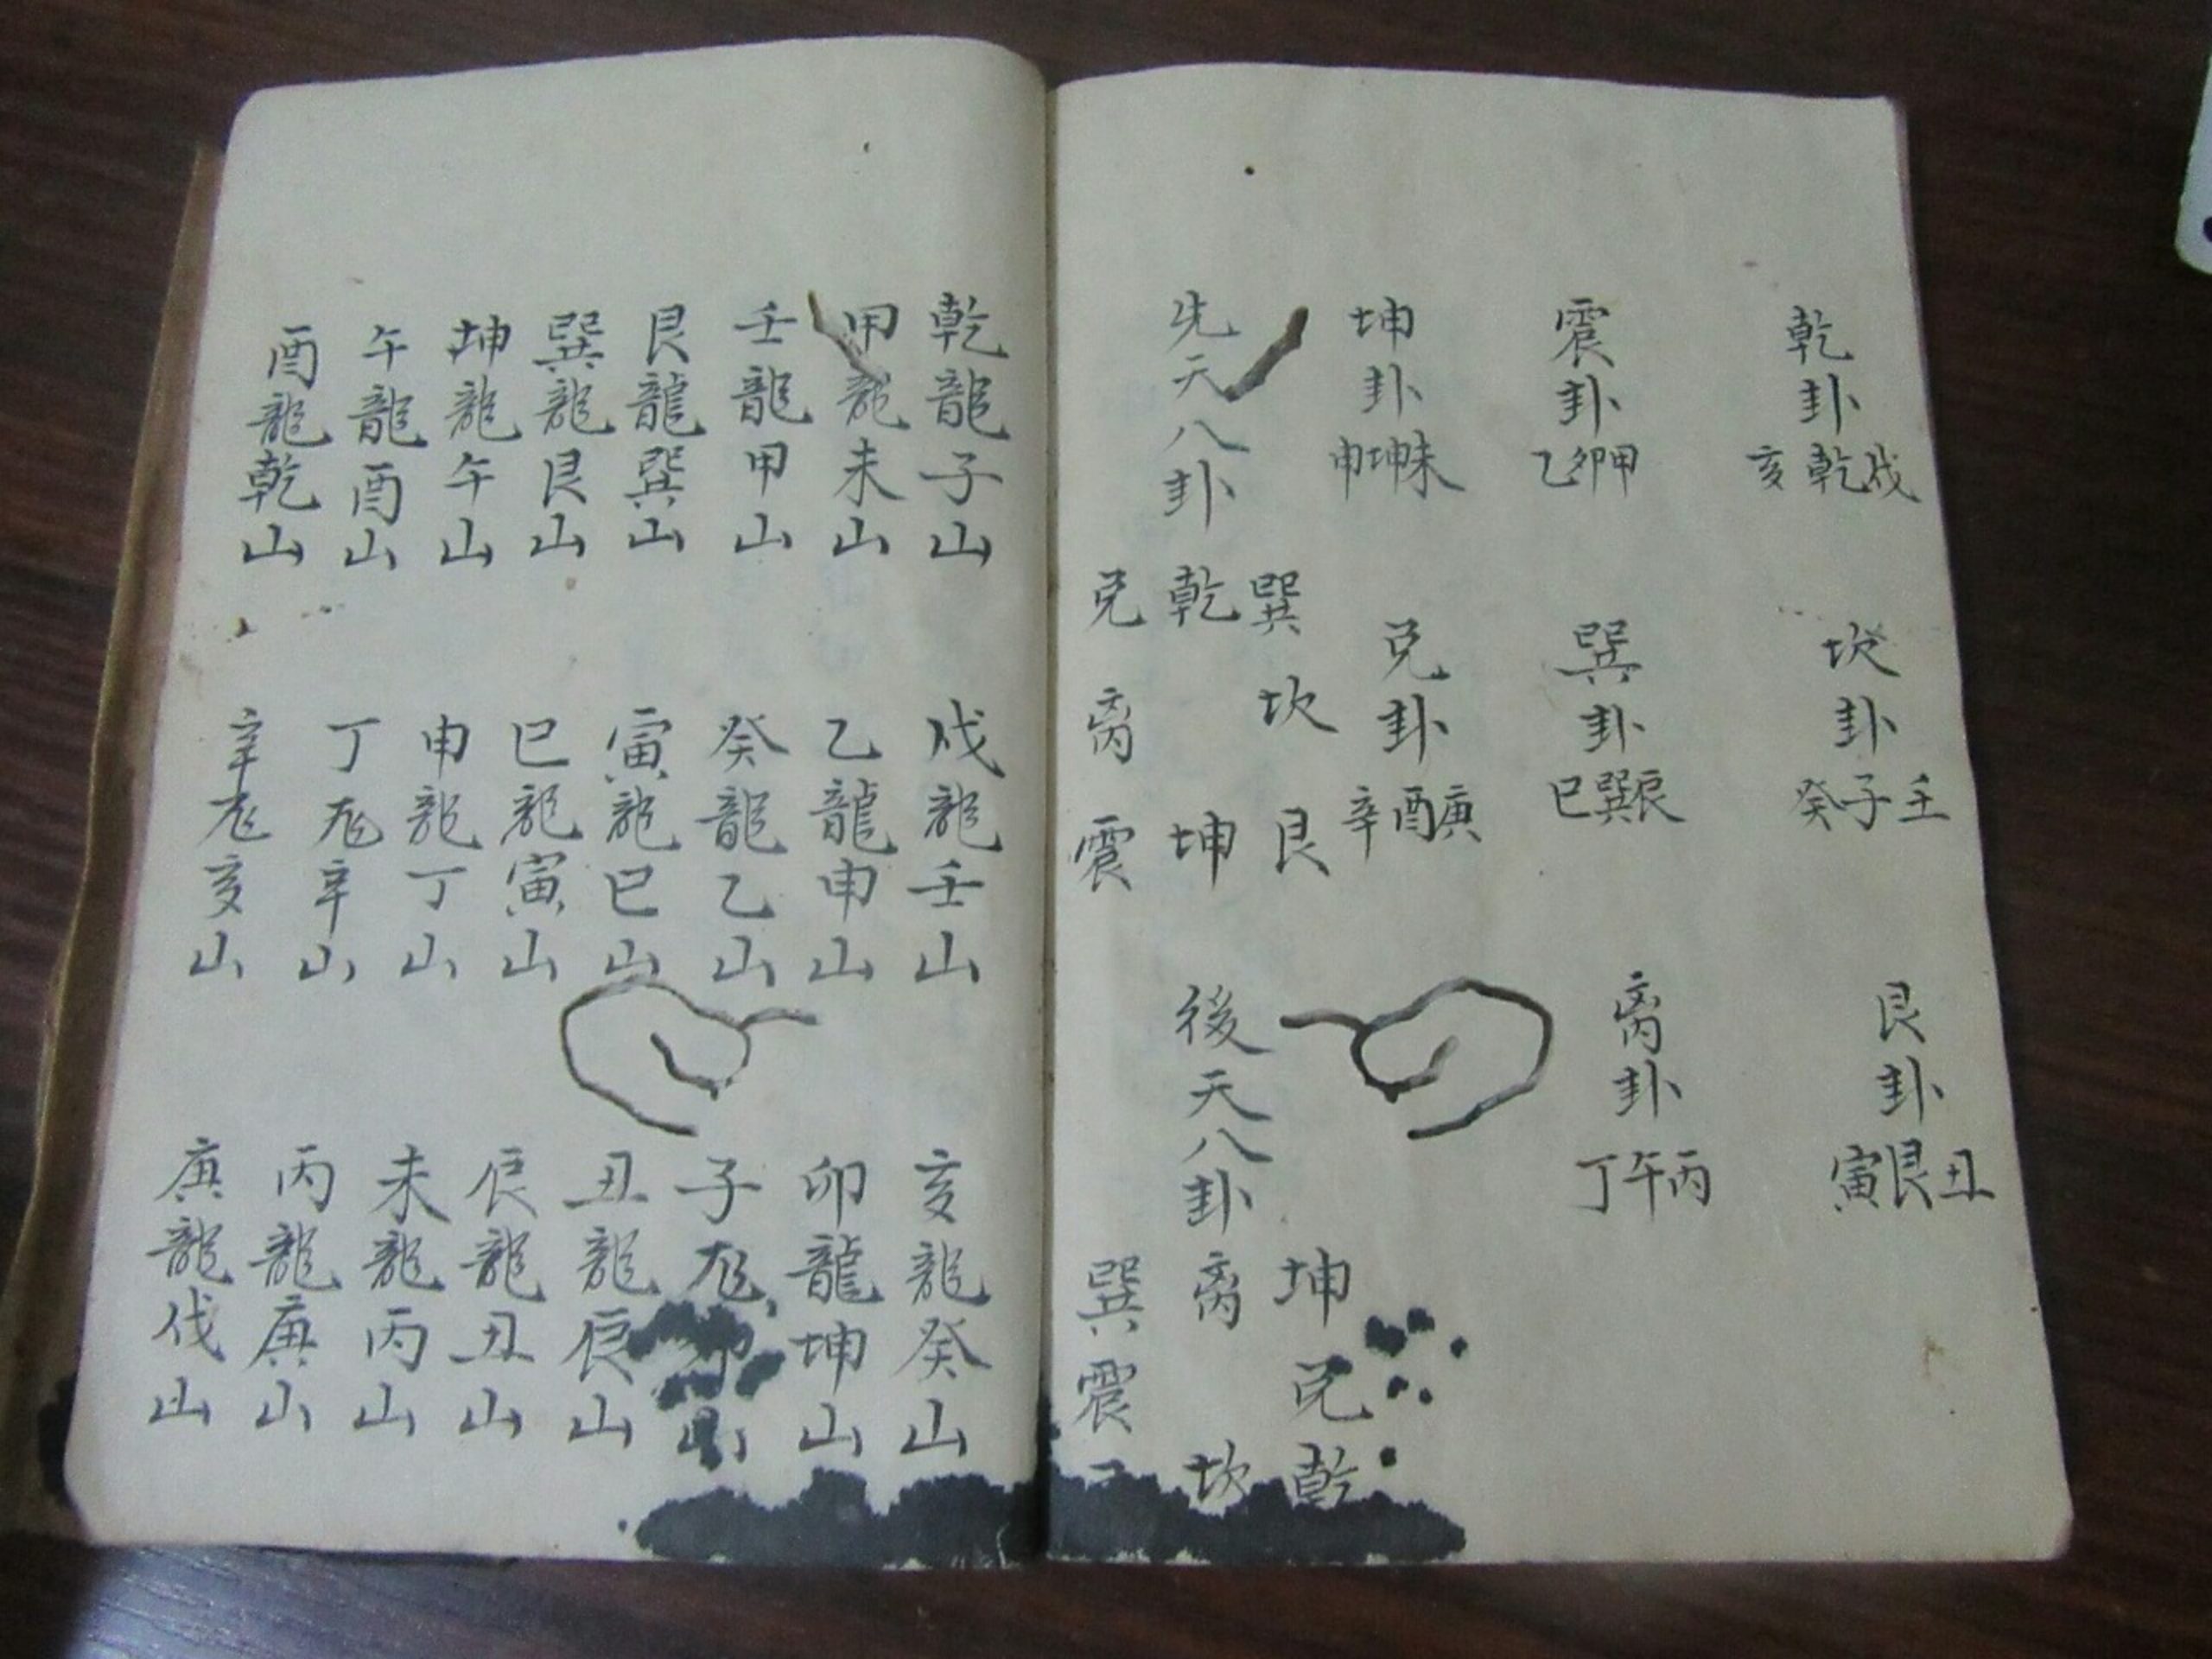 乾卦
戌乾亥
坎卦
壬子癸
艮卦
丑艮寅
震卦
甲卯乙
巽卦
辰巽巳
离卦
丙午丁
坤卦
未坤申
兑卦
庚酉辛
先天八卦
巽乾兑
坎离
艮坤震
後天八卦
坤离巽
兑震
乾坎
乾龍子山
戌龍壬山
亥龍癸山
甲龍未山
乙龍申山
卯龍坤山
壬龍甲山
癸龍乙山
子龙山
艮龍巽山
寅龍巳山
丑龍辰山
巽龍艮山
巳龍寅山
辰龍丑山
坤龍午山
申龍丁山
未龍丙山
午龍酉山
丁龙辛山
丙龍庚山
酉龍乾山
辛龙亥山
庚龍戌山